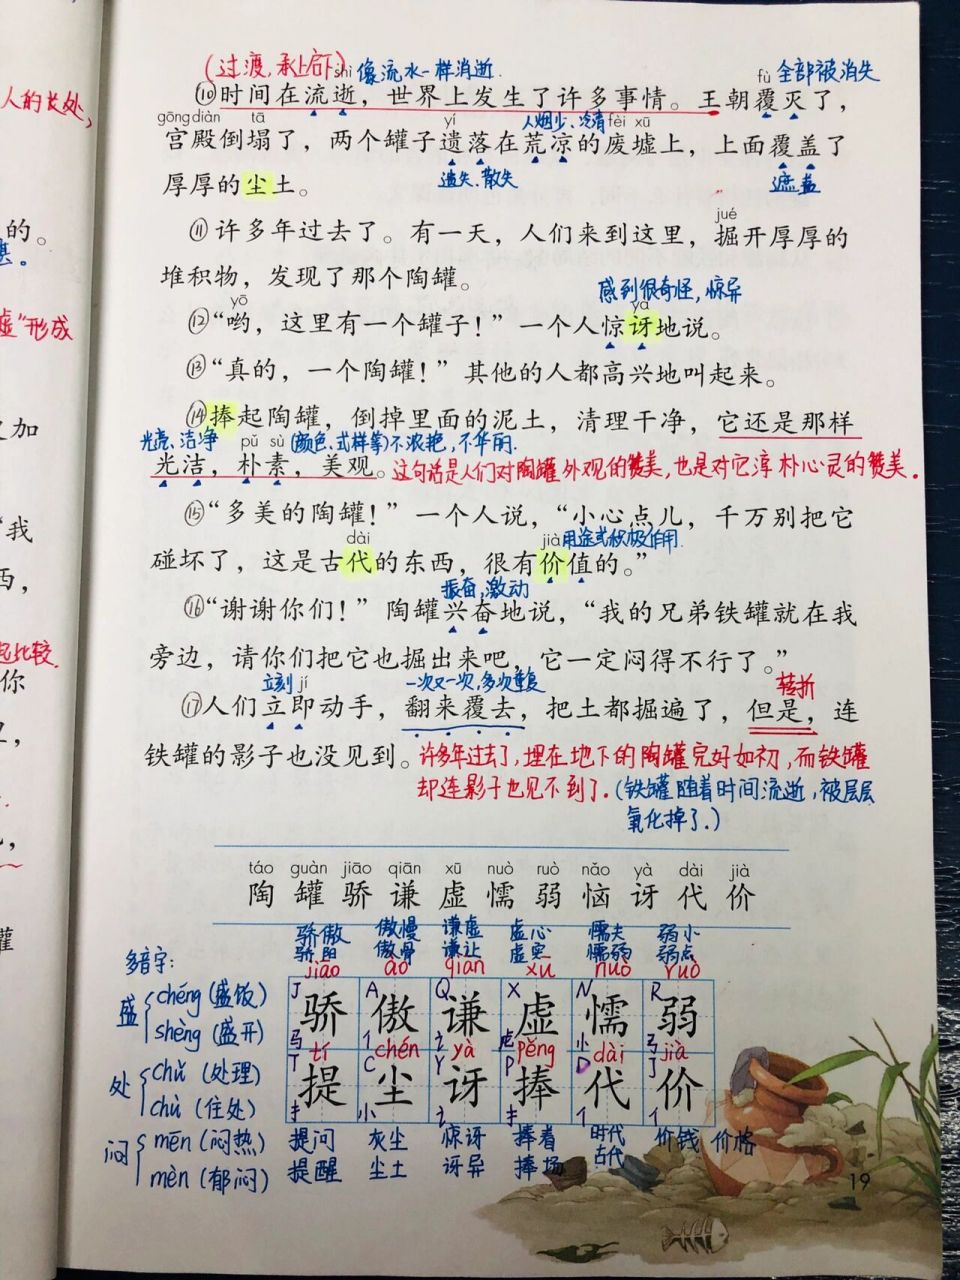 人的长处，
的。
虚”形成
加
“我
西，
起比较.
你
(过渡，承上启下)
shì
像流水一样消逝.
fù
全部被消失
⑩时间在流逝，世界上发生了许多事情。王朝覆灭了，
gōng diàn tā yí 人烟少、冷清 fèi xū
宫殿倒塌了，两个罐子遗落在荒凉的废墟上，上面覆盖了
遗失、散失
遮盖
厚厚的尘土。
jué
⑪许多年过去了。有一天，人们来到这里，掘开厚厚的
堆积物，发现了那个陶罐。
感到很奇怪，惊异
yō yà
⑫“哟，这里有一个罐子！”一个人惊讶地说。
⑬“真的，一个陶罐！”其他的人都高兴地叫起来。
⑭捧起陶罐，倒掉里面的泥土，清理干净，它还是那样
光亮、洁净 pǔ sù (颜色、式样等)不浓艳，不华丽.
光洁，朴素，美观。这句话是人们对陶罐外观的赞美，也是对它淳朴心灵的赞美.
⑮“多美的陶罐！”一个人说，“小心点儿，千万别把它
dài jià 用途或积极作用.
碰坏了，这是古代的东西，很有价值的。”
振奋，激动
⑯“谢谢你们！”陶罐兴奋地说，“我的兄弟铁罐就在我
旁边，请你们把它也掘出来吧，它一定闷得不行了。”
立刻 jí 一次又一次，多次重复 转折
⑰人们立即动手，翻来覆去，把土都掘遍了，但是，连
铁罐的影子也没见到。许多年过去了，埋在地下的陶罐完好如初，而铁罐
却连影子也见不到了.(铁罐随着时间流逝，被层层
氧化掉了.)
táo guàn jiāo qiān xū nuò ruò nǎo yà dài jià
陶 罐 骄 谦 虚 懦 弱 恼 讶 代 价
骄傲 傲慢 谦虚 虚心 懦夫 弱小
骄阳 傲骨 谦让 虚实 懦弱 弱点
jiāo ào qiān xū nuò ruò
J A Q X N R
骄 傲 谦 虚 懦 弱
马 亻 讠 虍 忄 弓
tí chén yà pěng dài jià
T C Y P D J
提 尘 讶 捧 代 价
扌 小 讠 扌 亻 亻
提问 灰尘 惊讶 捧着 时代 价钱 价格
提醒 尘土 讶异 捧场 古代
多音字:
盛 chéng (盛饭)
shèng (盛开)
处 chǔ (处理)
chù (住处)
闷 mēn (闷热)
mèn (郁闷)
19